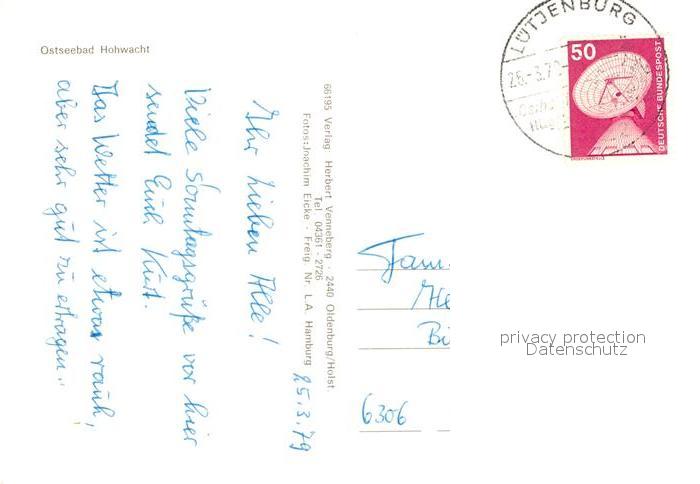 Ostseebad Hohwacht
25.3.79
Ihr Lieben Alle!
Viele Sonntagsgrüße von hier
sendet Euch Kurt.
Das Wetter ist etwas rauh,
aber sehr gut zu ertragen.
66195 Verlag: Herbert Venneberg · 2440 Oldenburg/Holst.
Tel. 04361 - 2726
Fotos: Joachim Eicke · Freig. Nr. L.A. Hamburg
LÜTJENBURG
50
DEUTSCHE BUNDESPOST
Fam.
6306
privacy protection
Datenschutz